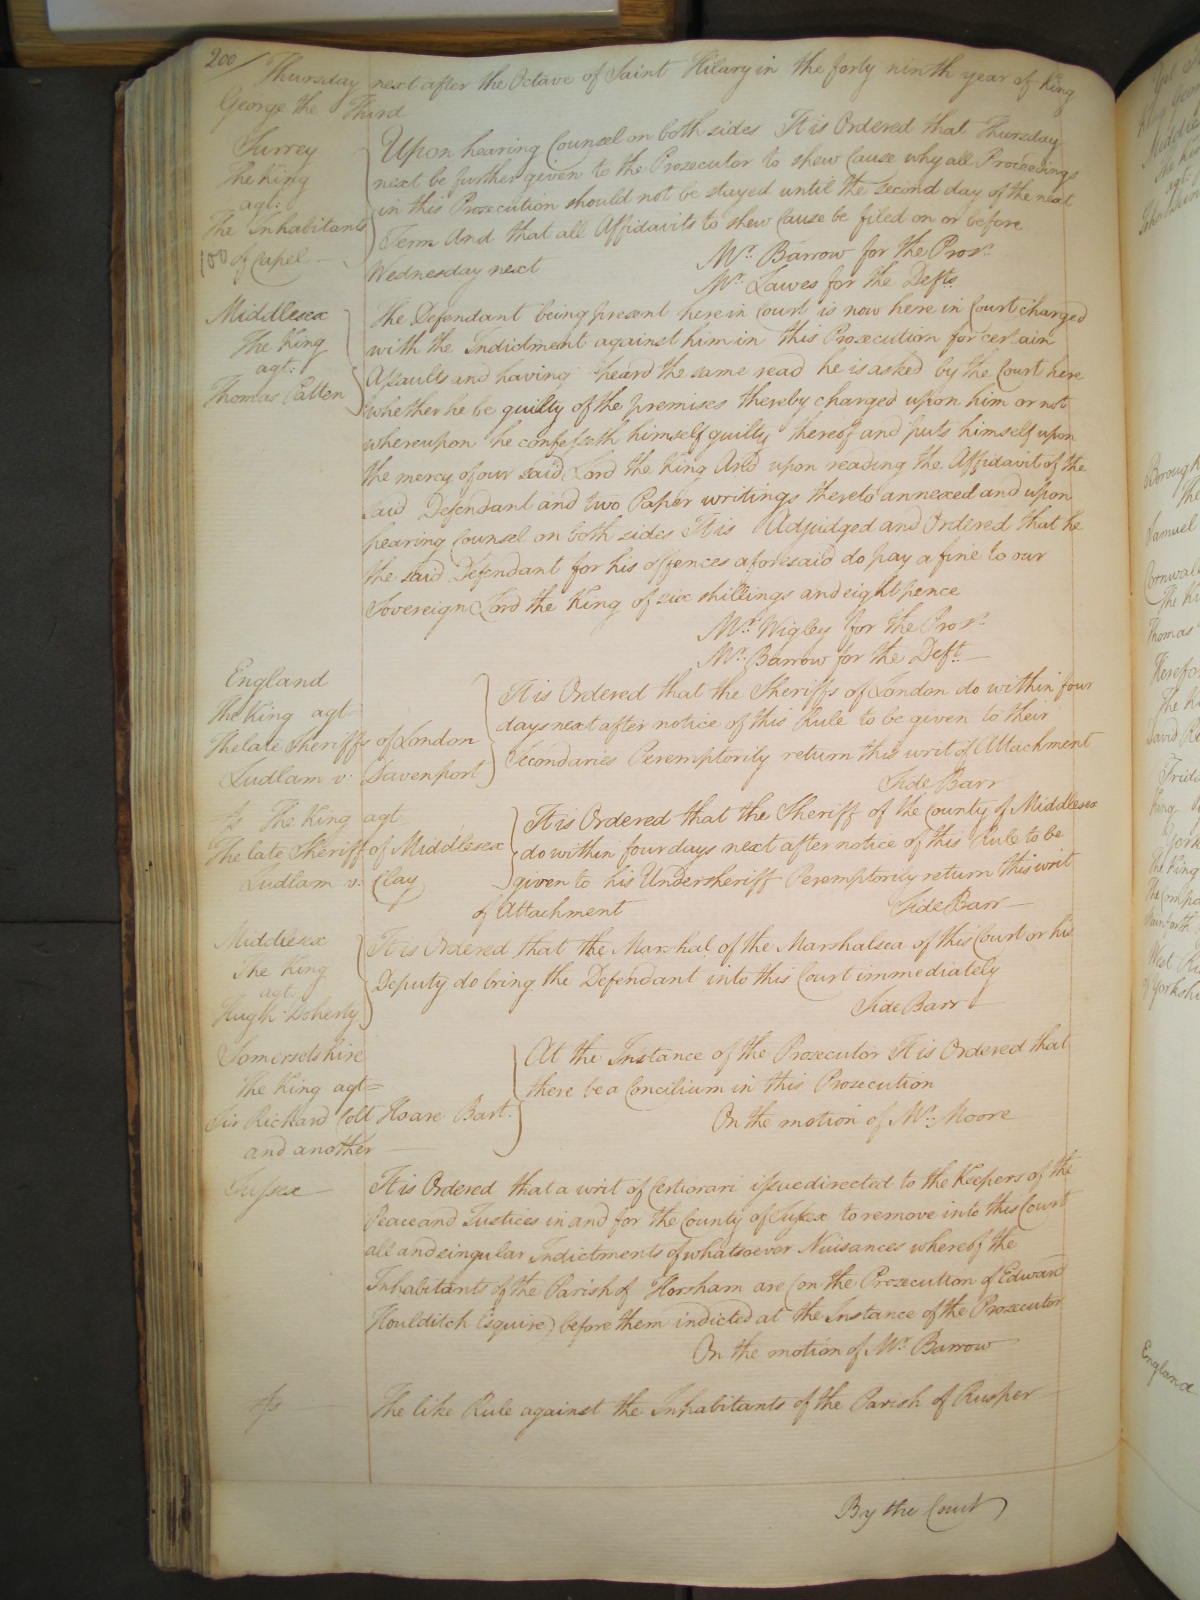 200/
Thursday next after the Octave of Saint Hilary in the forty ninth year of King
George the Third
Surrey
The King
agt:
The Inhabitants
100 of Capel
Upon hearing Counsel on both sides It is Ordered that Thursday
next be further given to the Prosecutor to shew Cause why all Proceedings
in this Prosecution should not be stayed until the second day of the next
Term And that all Affidavits to shew Cause be filed on or before
Wednesday next
Mr. Barrow for the Prosr.
Mr. Lawes for the Defts.
Middlesex
The King
agt:
Thomas Patten
The Defendant being present here in Court is now here in Court charged
with the Indictment against him in this Prosecution for certain
Assaults and having heard the same read he is asked by the Court here
whether he be guilty of the premises thereby charged upon him or not
whereupon he confesseth himself guilty thereof and puts himself upon
the mercy of our said Lord the King And upon reading the Affidavit of the
said Defendant and two Paper writings thereto annexed and upon
hearing Counsel on both sides It is Adjudged and Ordered that he
the said Defendant for his offences aforesaid do pay a fine to our
Sovereign Lord the King of six shillings and eight pence
Mr. Wigley for the Prosr.
Mr. Barrow for the Deft.
England
The King agt
The late Sheriffs of London
Ludlam v: Davenport
It is Ordered that the Sheriffs of London do within four
days next after notice of this Rule to be given to their
Secondaries Peremptorily return this writ of Attachment
Side Barr
The King agt
The late Sheriff of Middlesex
Ludlam v: Clay
It is Ordered that the Sheriff of the County of Middlesex
do within four days next after notice of this Rule to be
given to his Undersheriff Peremptorily return this writ
of Attachment
Side Barr
Middlesex
The King
agt.
Hugh Doherty
It is Ordered that the Marshal of the Marshalsea of this Court or his
Deputy do bring the Defendant into this Court immediately
Side Barr
Somersetshire
The King agt
Sir Richard Colt Hoare Bart.
and another
At the Instance of the Prosecutor It is Ordered that
there be a Concilium in this Prosecution
On the motion of Mr. Moore
Sussex
It is Ordered that a writ of Certiorari issue directed to the Keepers of the
Peace and Justices in and for the County of Sussex to remove into this Court
all and singular Indictments of whatsoever Nuisances whereof the
Inhabitants of the Parish of Horsham are (on the Prosecution of Edward
Houlditch Esquire) before them indicted at the Instance of the Prosecutor
On the motion of Mr. Barrow
The like Rule against the Inhabitants of the Parish of Rusper
By the Court
Borough
The
Samuel
Cornwall
The Ki
Thomas
Herefor
The K
England